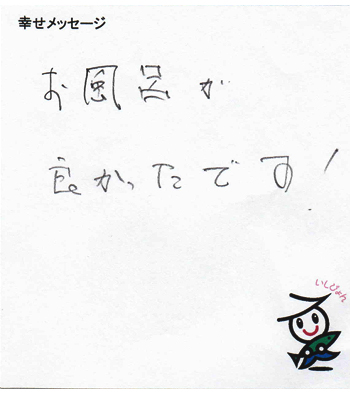 幸せメッセージ
お風呂が
良かったです!
いしぴょん